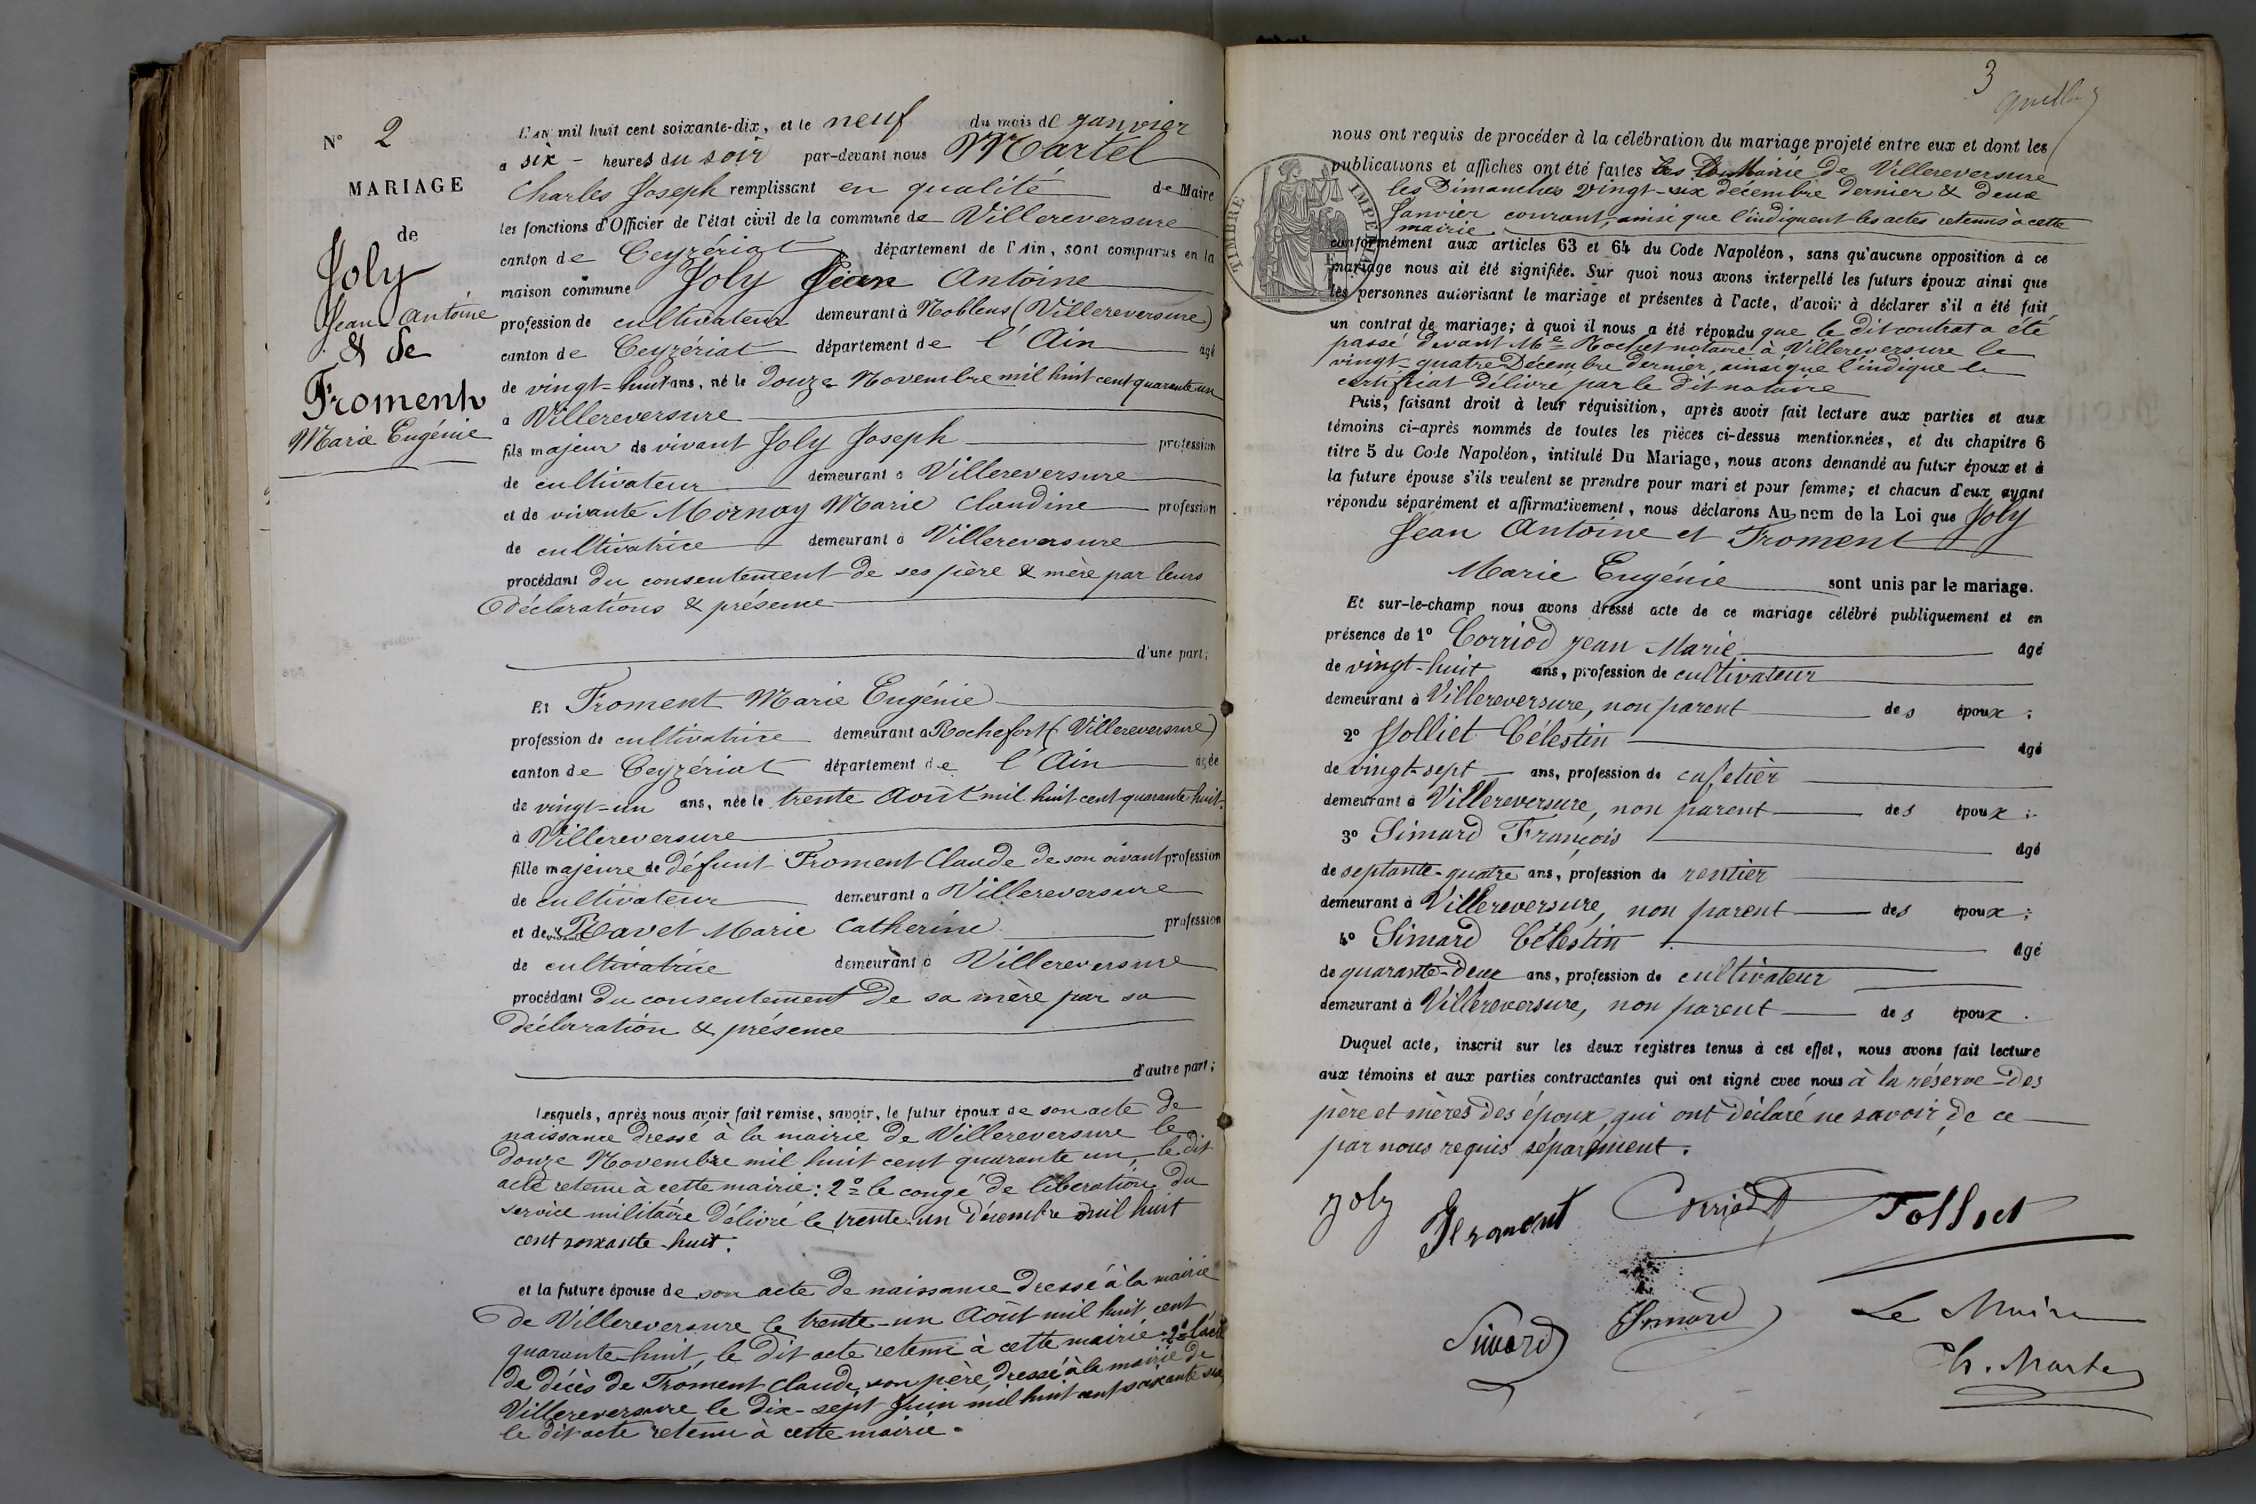 N° 2
MARIAGE
de
Joly
Jean Antoine
& de
Froment
Marie Eugénie
L'AN mil huit cent soixante-dix, et le neuf du mois de Janvier
à six heures du soir par-devant nous Martel
Charles Joseph remplissant en qualité de Maire
les fonctions d'Officier de l'état civil de la commune de Villereversure
canton de Ceyzériat département de l'Ain, sont comparus en la
maison commune Joly Jean Antoine
profession de cultivateur demeurant à Noblens (Villereversure)
canton de Ceyzériat département de l'Ain agé
de vingt-huit ans, né le douze Novembre mil huit cent quarante un
à Villereversure
fils majeur de vivant Joly Joseph profession
de cultivateur demeurant à Villereversure
et de vivante Mornay Marie Claudine profession
de cultivatrice demeurant à Villereversure
procédant du consentement de ses père & mère par leurs
déclarations & présence
d'une part;
Et Froment Marie Eugénie
profession de cultivatrice demeurant à Rochefort (Villereversure)
canton de Ceyzériat département de l'Ain agée
de vingt-un ans, née le trente Août mil huit cent quarante huit
à Villereversure
fille majeure de défunt Froment Claude de son vivant profession
de cultivateur demeurant à Villereversure
et de vivante Ravet Marie Catherine profession
de cultivatrice demeurant à Villereversure
procédant du consentement de sa mère par sa
déclaration & présence
d'autre part;
Lesquels, après nous avoir fait remise, savoir, le futur époux de son acte de
naissance dressé à la mairie de Villereversure le
douze Novembre mil huit cent quarante un, le dit
acte retenu à cette mairie: 2° le congé de libération du
service militaire délivré le trente-un décembre mil huit
cent soixante-huit.
et la future épouse de son acte de naissance dressé à la mairie
de Villereversure le trente-un Août mil huit cent
quarante-huit, le dit acte retenu à cette mairie. 2° l'acte
de décès de Froment Claude, son père dressé à la mairie de
Villereversure le dix-sept Juin mil huit cent soixante six
le dit acte retenu à cette mairie.
3
nous ont requis de procéder à la célébration du mariage projeté entre eux et dont les
publications et affiches ont été faites Mairie de Villereversure
les Dimanches vingt-six décembre dernier & deux
Janvier courant, ainsi que l'indiquent les actes retenus à cette
mairie
conformément aux articles 63 et 64 du Code Napoléon, sans qu'aucune opposition à ce
mariage nous ait été signifiée. Sur quoi nous avons interpellé les futurs époux ainsi que
les personnes autorisant le mariage et présentes à l'acte, d'avoir à déclarer s'il a été fait
un contrat de mariage; à quoi il nous a été répondu que le dit contrat a été
passé devant Me Rochet notaire à Villereversure le
vingt-quatre Décembre dernier, ainsi que l'indique le
certificat délivré par le dit notaire
Puis, faisant droit à leur réquisition, après avoir fait lecture aux parties et aux
témoins ci-après nommés de toutes les pièces ci-dessus mentionnées, et du chapitre 6
titre 5 du Code Napoléon, intitulé Du Mariage, nous avons demandé au futur époux et à
la future épouse s'ils veulent se prendre pour mari et pour femme; et chacun d'eux ayant
répondu séparément et affirmativement, nous déclarons Au nom de la Loi que Joly
Jean Antoine et Froment
Marie Eugénie sont unis par le mariage.
Et sur-le-champ nous avons dressé acte de ce mariage célébré publiquement et en
présence de 1° Corriod Jean Marie agé
de vingt-huit ans, profession de cultivateur
demeurant à Villereversure, non parent des époux;
2° Jolliet Célestin agé
de vingt-sept ans, profession de cafetier
demeurant à Villereversure, non parent des époux;
3° Simard François agé
de septante-quatre ans, profession de rentier
demeurant à Villereversure, non parent des époux;
4° Simard Célestin agé
de quarante-deux ans, profession de cultivateur
demeurant à Villereversure, non parent des époux.
Duquel acte, inscrit sur les deux registres tenus à cet effet, nous avons fait lecture
aux témoins et aux parties contractantes qui ont signé avec nous à la réserve des
père et mères des époux, qui ont déclaré ne savoir, de ce
par nous requis séparément.
TIMBRE IMPERIAL
Joly Froment Corriod Jolliet
Simard Simard Le Maire
Ch. Martel